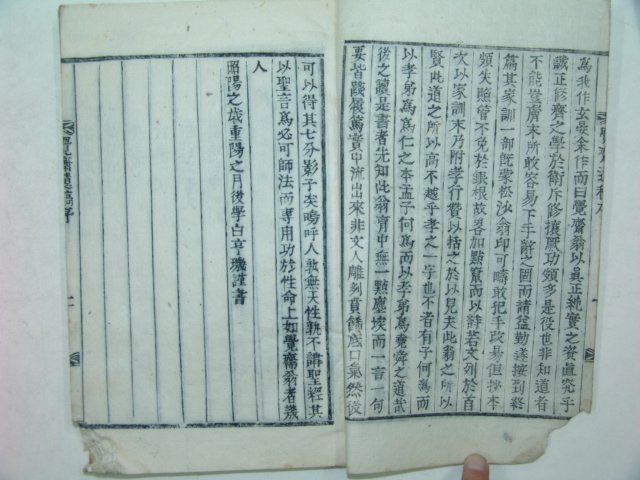 爲我作玄晏余作而曰覺齋翁以眞正純實之資直究乎
誠正修齊之學於衛斥修攘厥功頗多是役也非知道者
不能豈膚末所敢容易下手辭之固而請益勤遂按到終
篇其家訓一部旣蒙松沙翁印可疇敢犯手改易但挑本
頻失照管不免於銀根故畧加點竄而以詩若文列於百
次以家訓末乃附孝行贊以括之於以見夫此翁之所以
賢此道之所以高不越乎孝之一字也不者有子何爲而
以孝弟爲爲仁之本孟子何爲而以孝弟爲堯舜之道哉
後之讀是書者先知此翁胷中無一點塵埃而一言一句
要皆踐履篤實中流出來非文人雕刻蕡饙底口氣然後
可以得其七分影子矣嗚呼人孰無天性孰不講聖經其
以聖言爲必可師法而專用功於性命上如覺齋翁者幾
人
昭陽之歲重陽之月後學白亨璣謹書
覺齋遺稿序
二